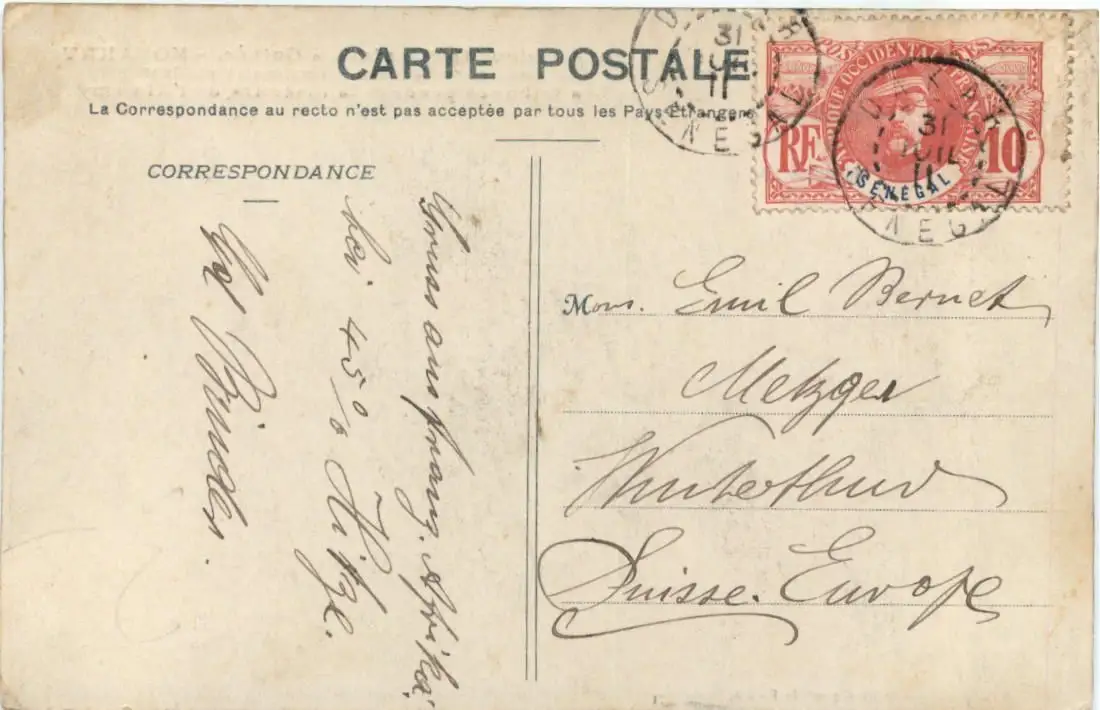 CARTE POSTALE
La Correspondance au recto n'est pas acceptée par tous les Pays Etrangers
CORRESPONDANCE
Gruss aus franz. Afrika.
bei 45° Hitze.
Mons. Emil Bernet
Metzger
Winterthur
Suisse. Europe
AFRIQUE OCCIDENTALE FRANÇAISE
POSTES
RF
10
SÉNÉGAL
DAKAR
31
JUIL
11
SENEGAL
DAKAR
31
JUIL
11
SENEGAL